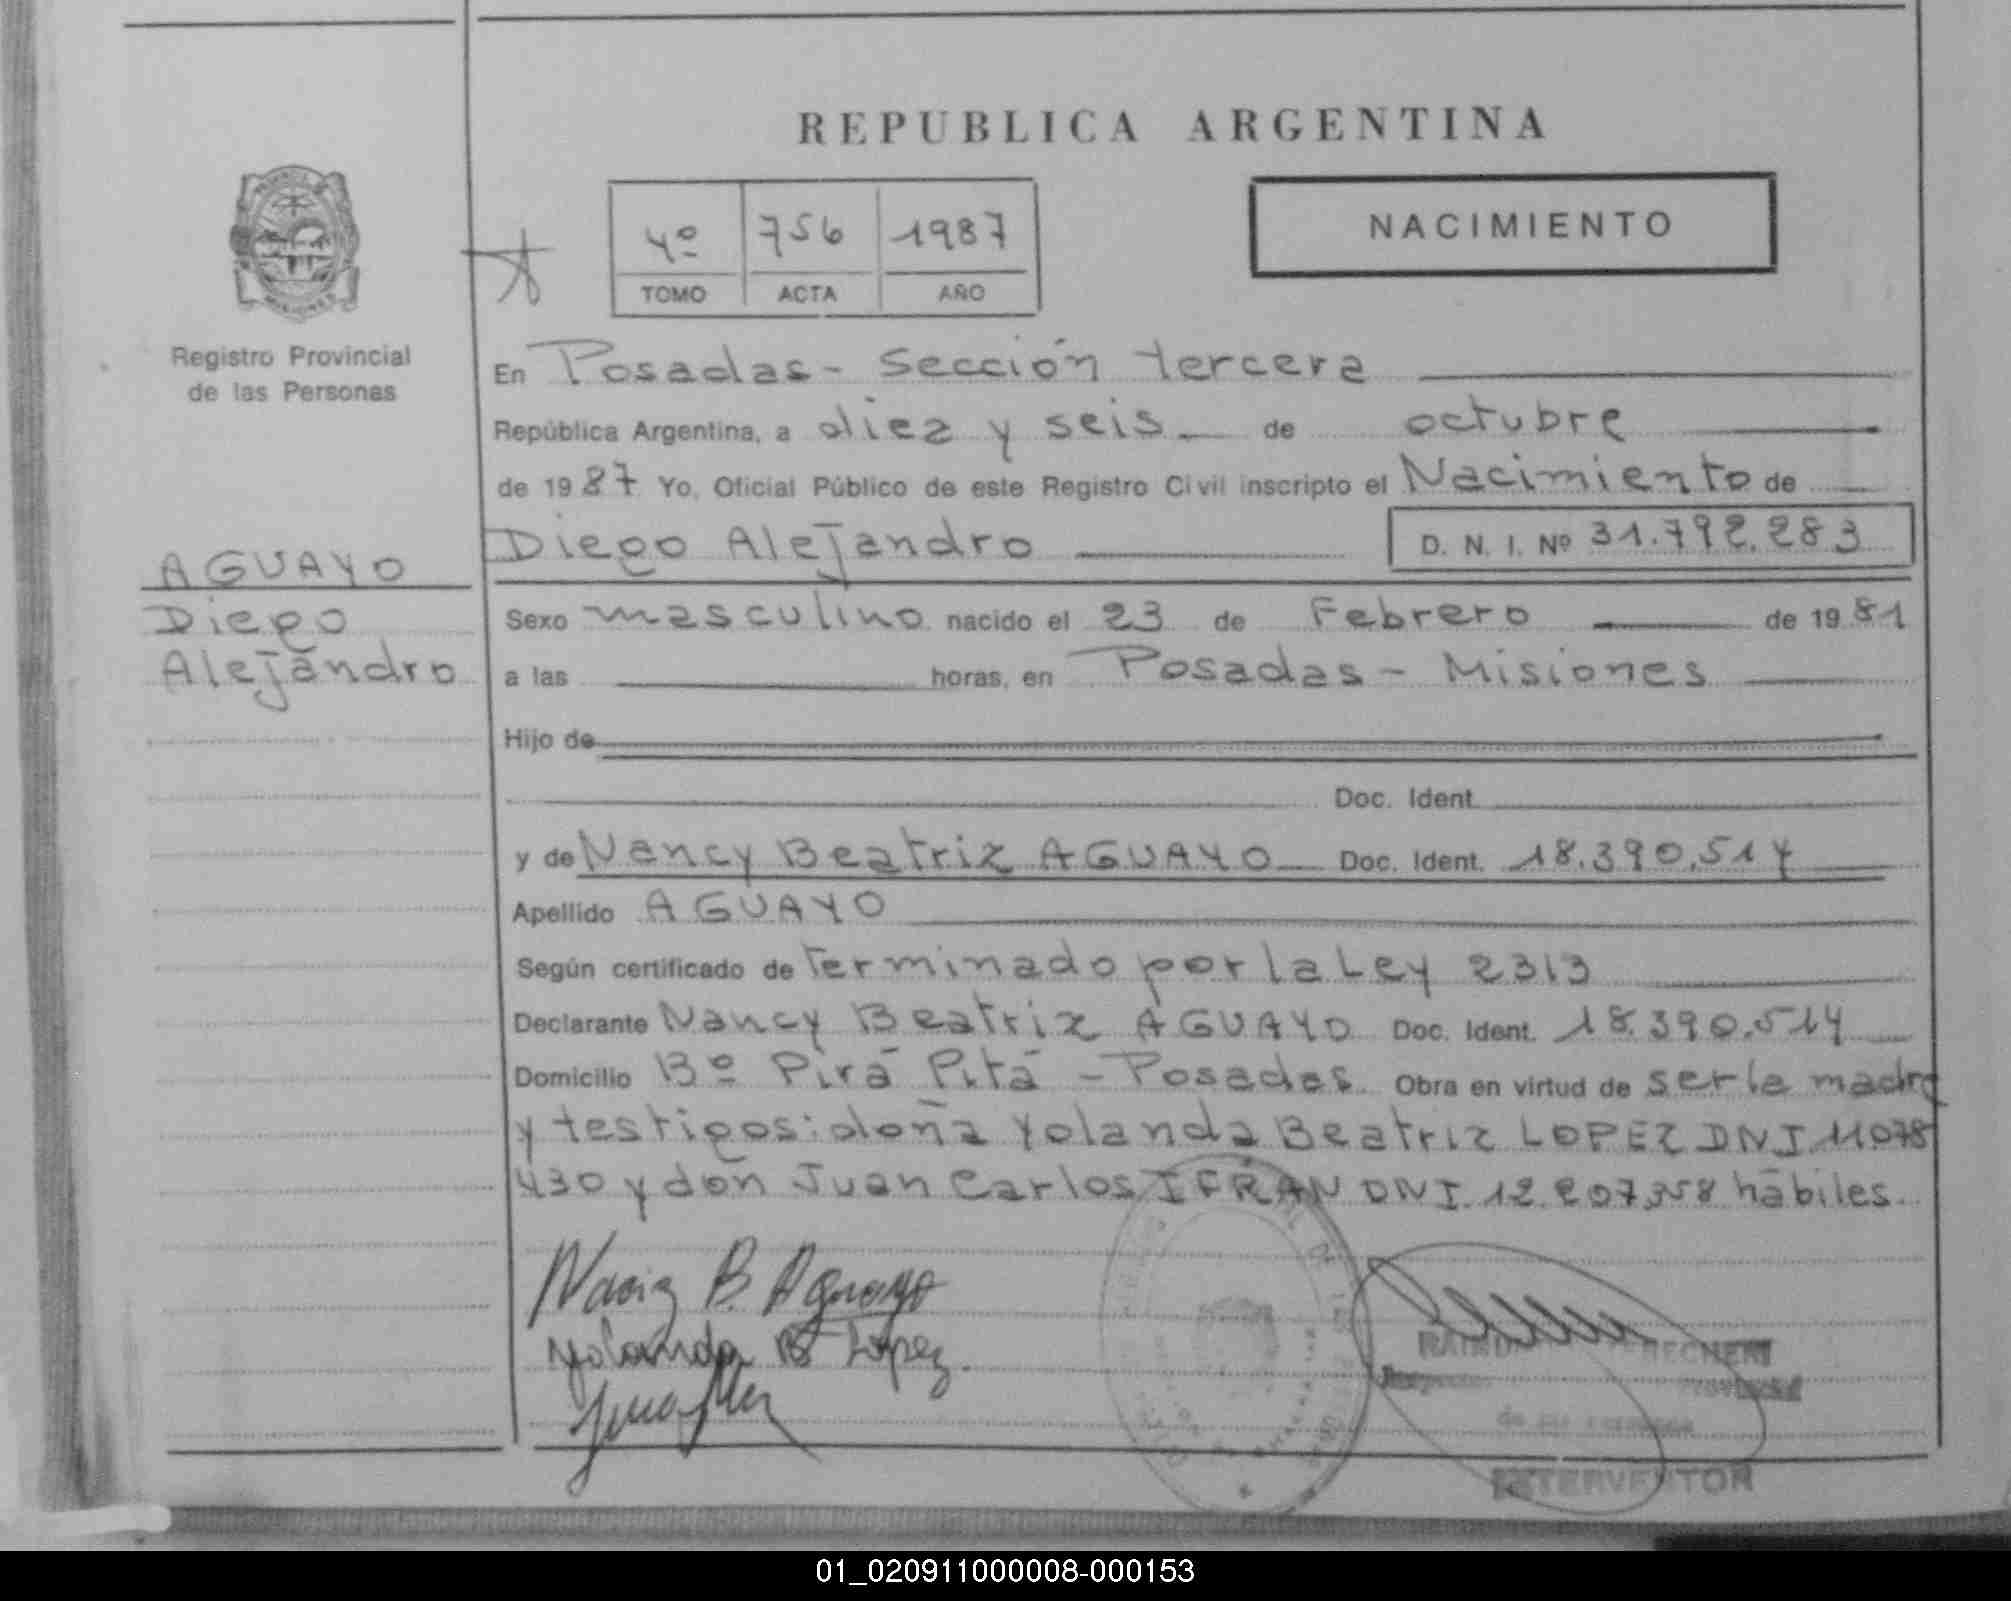 REPUBLICA ARGENTINA
4º 756 1987
TOMO ACTA AÑO
NACIMIENTO
PROVINCIA
MISIONES
Registro Provincial
de las Personas
En Posadas - Sección tercera
República Argentina, a diez y seis de octubre
de 1987 Yo, Oficial Público de este Registro Civil inscripto el Nacimiento de
Diego Alejandro D. N. I. Nº 31.792.283
AGUAYO
Diego
Alejandro
Sexo masculino nacido el 23 de Febrero de 1981
a las horas, en Posadas - Misiones
Hijo de
Doc. Ident.
y de Nancy Beatriz AGUAYO Doc. Ident. 18.390.514
Apellido AGUAYO
Según certificado de Terminado por la Ley 2313
Declarante Nancy Beatriz AGUAYO Doc. Ident. 18.390.514
Domicilio Bº Pirá Pitá - Posadas Obra en virtud de ser la madre
y testigos: doña Yolanda Beatriz LOPEZ DNI 11078
430 y don Juan Carlos IFRAN DNI. 12.207.358 hábiles.
B. Aguayo
Yolanda B Lopez.
INTERVENTOR
01_020911000008-000153